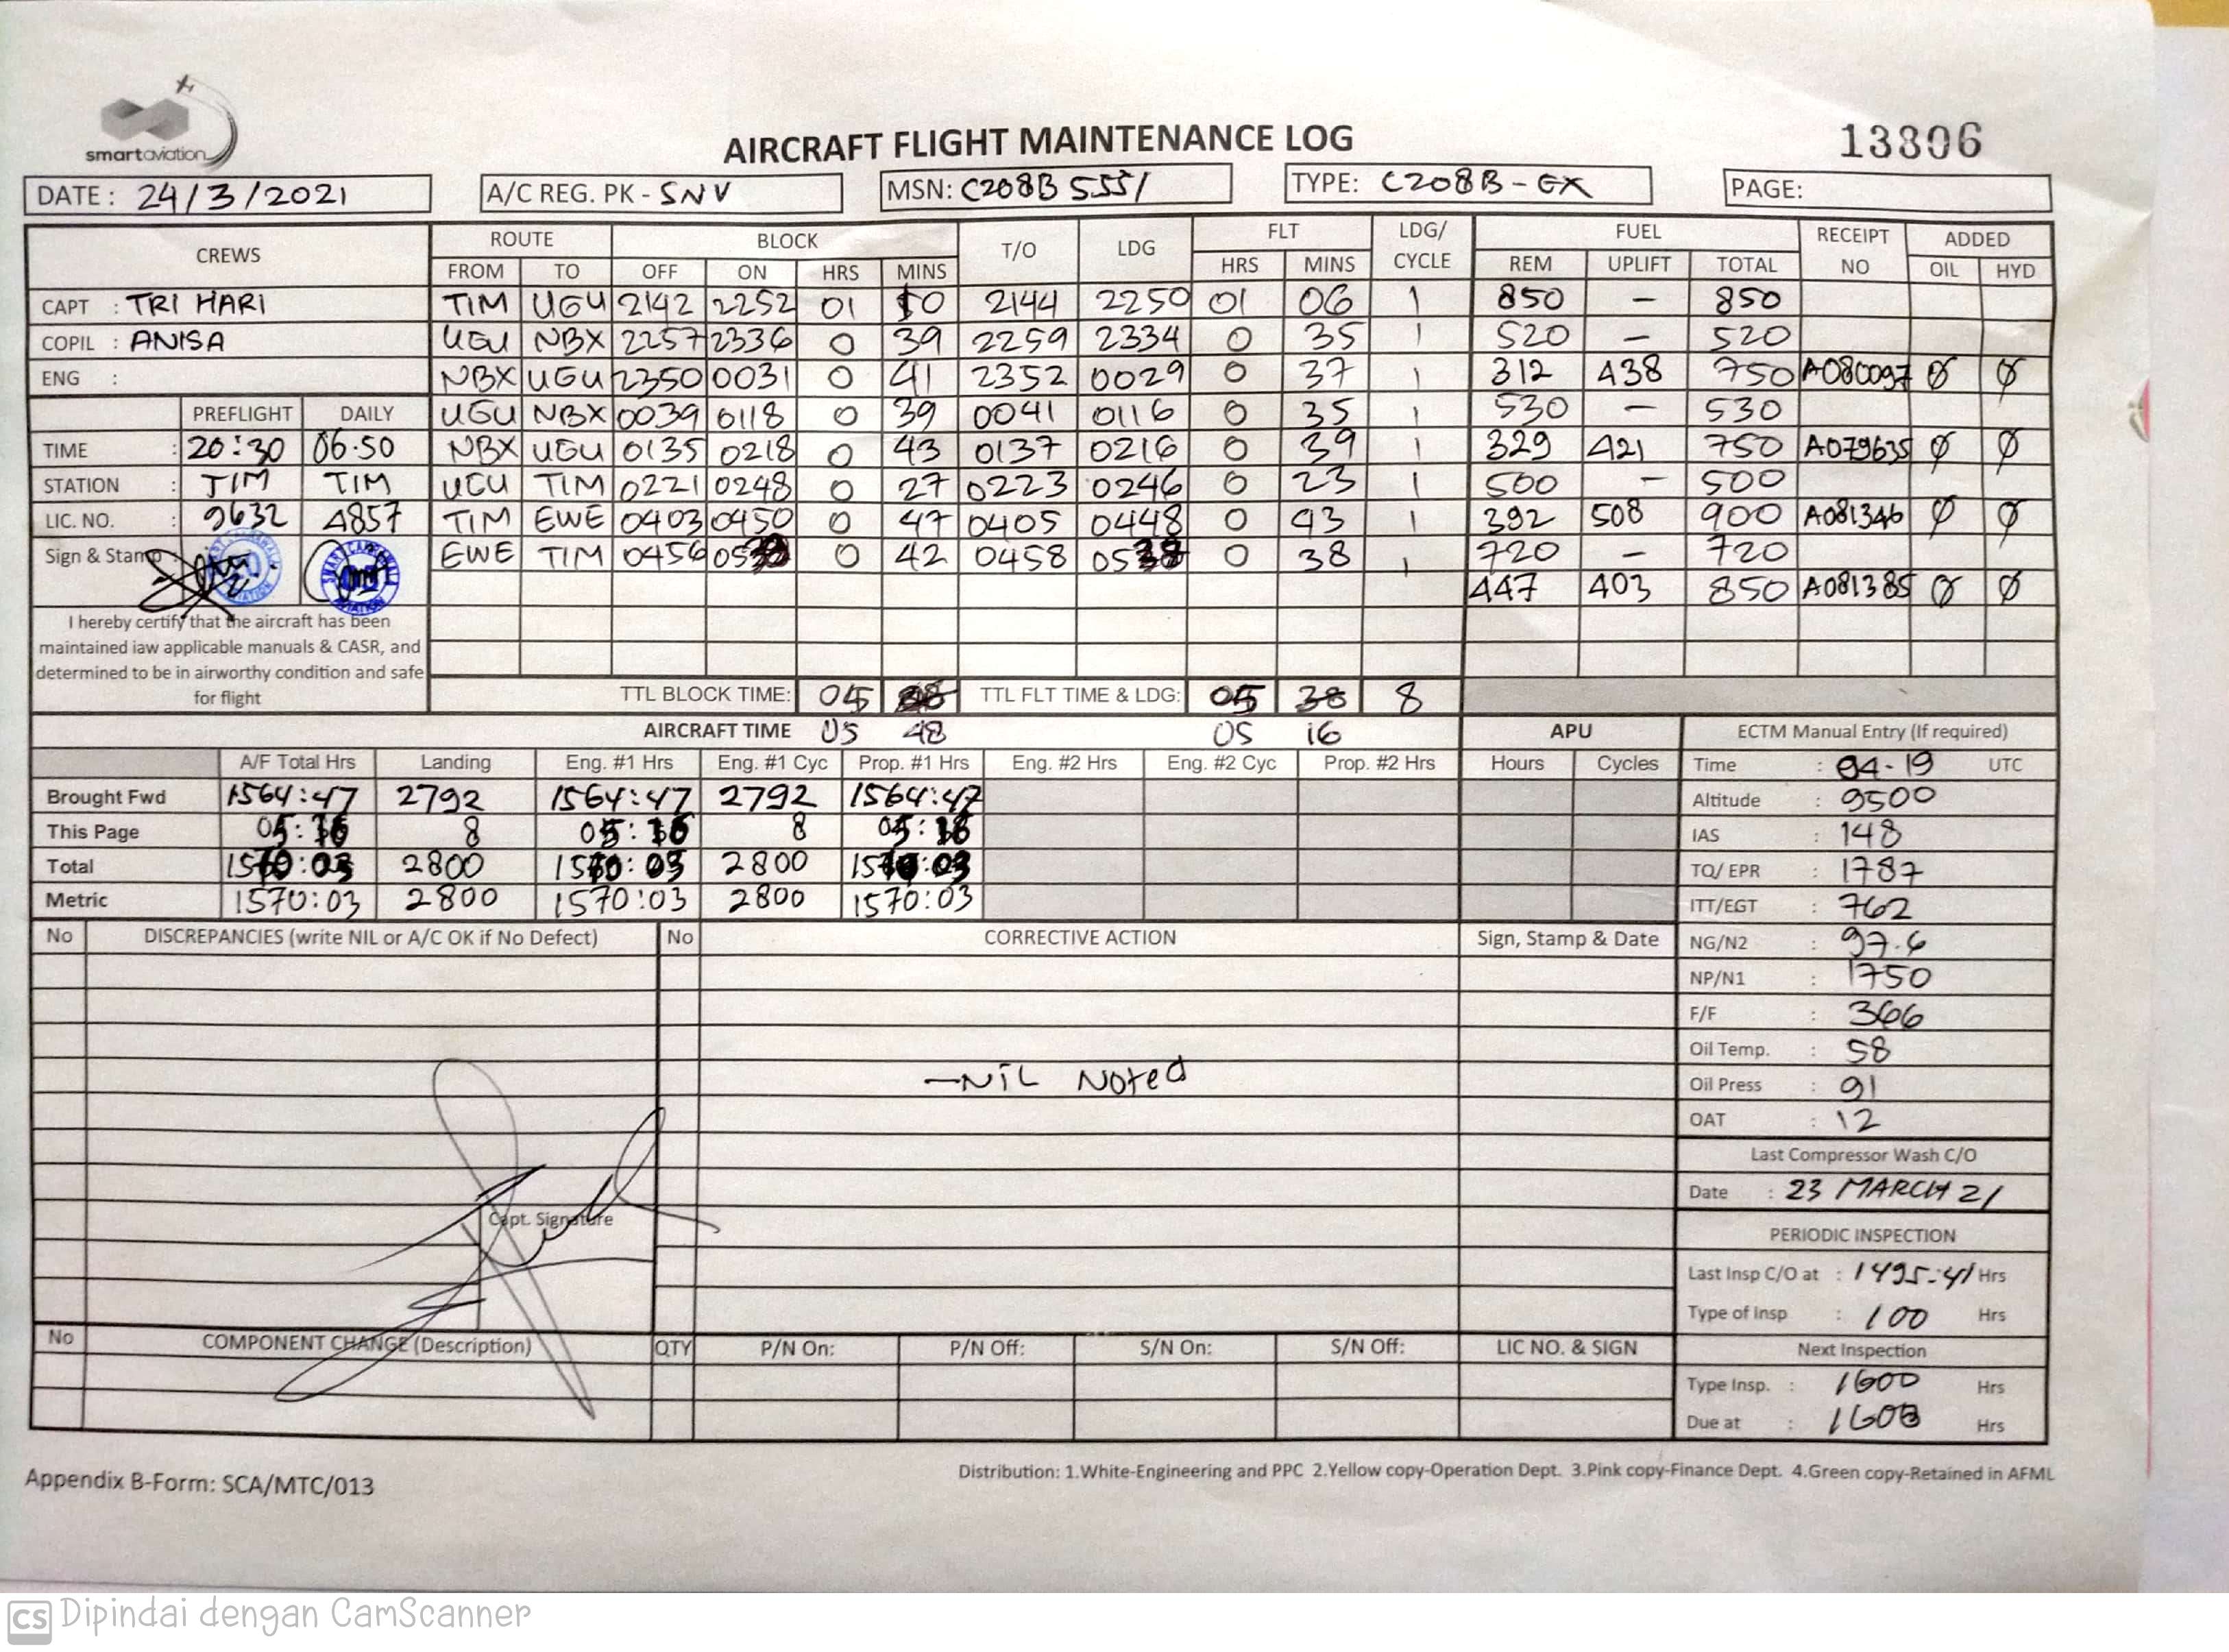 smartaviation
AIRCRAFT FLIGHT MAINTENANCE LOG
13806
DATE : 24/3/2021
A/C REG. PK - SNV
MSN: C208B 5551
TYPE: C208B - GX
PAGE:
CREWS ROUTE BLOCK T/O LDG FLT LDG/ CYCLE FUEL RECEIPT NO ADDED
FROM TO OFF ON HRS MINS HRS MINS REM UPLIFT TOTAL OIL HYD
CAPT : TRI HARI TIM UGU 2142 2252 01 10 2144 2250 01 06 1 850 - 850
COPIL : ANISA UGU NBX 2257 2336 0 39 2259 2334 0 35 1 520 - 520
ENG : NBX UGU 2350 0031 0 41 2352 0029 0 37 1 312 438 750 A080097 Ø Ø
PREFLIGHT DAILY UGU NBX 0039 0118 0 39 0041 0116 0 35 1 530 - 530
TIME : 20:30 06.50 NBX UGU 0135 0218 0 43 0137 0216 0 39 1 329 421 750 A079635 Ø Ø
STATION : TIM TIM UGU TIM 0221 0248 0 27 0223 0246 0 23 1 500 - 500
LIC. NO. : 9632 4857 TIM EWE 0403 0450 0 47 0405 0448 0 43 1 392 508 900 A081346 Ø Ø
Sign & Stamp EWE TIM 0456 0 42 0458 0 38 1 720 - 720
447 403 850 A081385 Ø Ø
I hereby certify that the aircraft has been
maintained iaw applicable manuals & CASR, and
determined to be in airworthy condition and safe
for flight
TTL BLOCK TIME: 05 TTL FLT TIME & LDG: 05 38 8
AIRCRAFT TIME 05 48 05 16 APU ECTM Manual Entry (If required)
A/F Total Hrs Landing Eng. #1 Hrs Eng. #1 Cyc Prop. #1 Hrs Eng. #2 Hrs Eng. #2 Cyc Prop. #2 Hrs Hours Cycles
Brought Fwd 1564:47 2792 1564:47 2792 1564:47
This Page 05:16 8 05:16 8 05:16
Total 1570:03 2800 1570:03 2800 1570:03
Metric 1570:03 2800 1570:03 2800 1570:03
Time : 04-19 UTC
Altitude : 9500
IAS : 148
TQ/ EPR : 1787
ITT/EGT : 762
NG/N2 : 97.6
NP/N1 : 1750
F/F : 366
Oil Temp. : 58
Oil Press : 91
OAT : 12
Last Compressor Wash C/O
Date : 23 MARCH 21
PERIODIC INSPECTION
Last Insp C/O at : 1495:41 Hrs
Type of Insp : 100 Hrs
Next Inspection
Type Insp. : 1600 Hrs
Due at : 1600 Hrs
No DISCREPANCIES (write NIL or A/C OK if No Defect) No CORRECTIVE ACTION Sign, Stamp & Date
- NIL Noted
Capt. Signature
No COMPONENT CHANGE (Description) QTY P/N On: P/N Off: S/N On: S/N Off: LIC NO. & SIGN
Appendix B-Form: SCA/MTC/013
Distribution: 1.White-Engineering and PPC 2.Yellow copy-Operation Dept. 3.Pink copy-Finance Dept. 4.Green copy-Retained in AFML
CS Dipindai dengan CamScanner